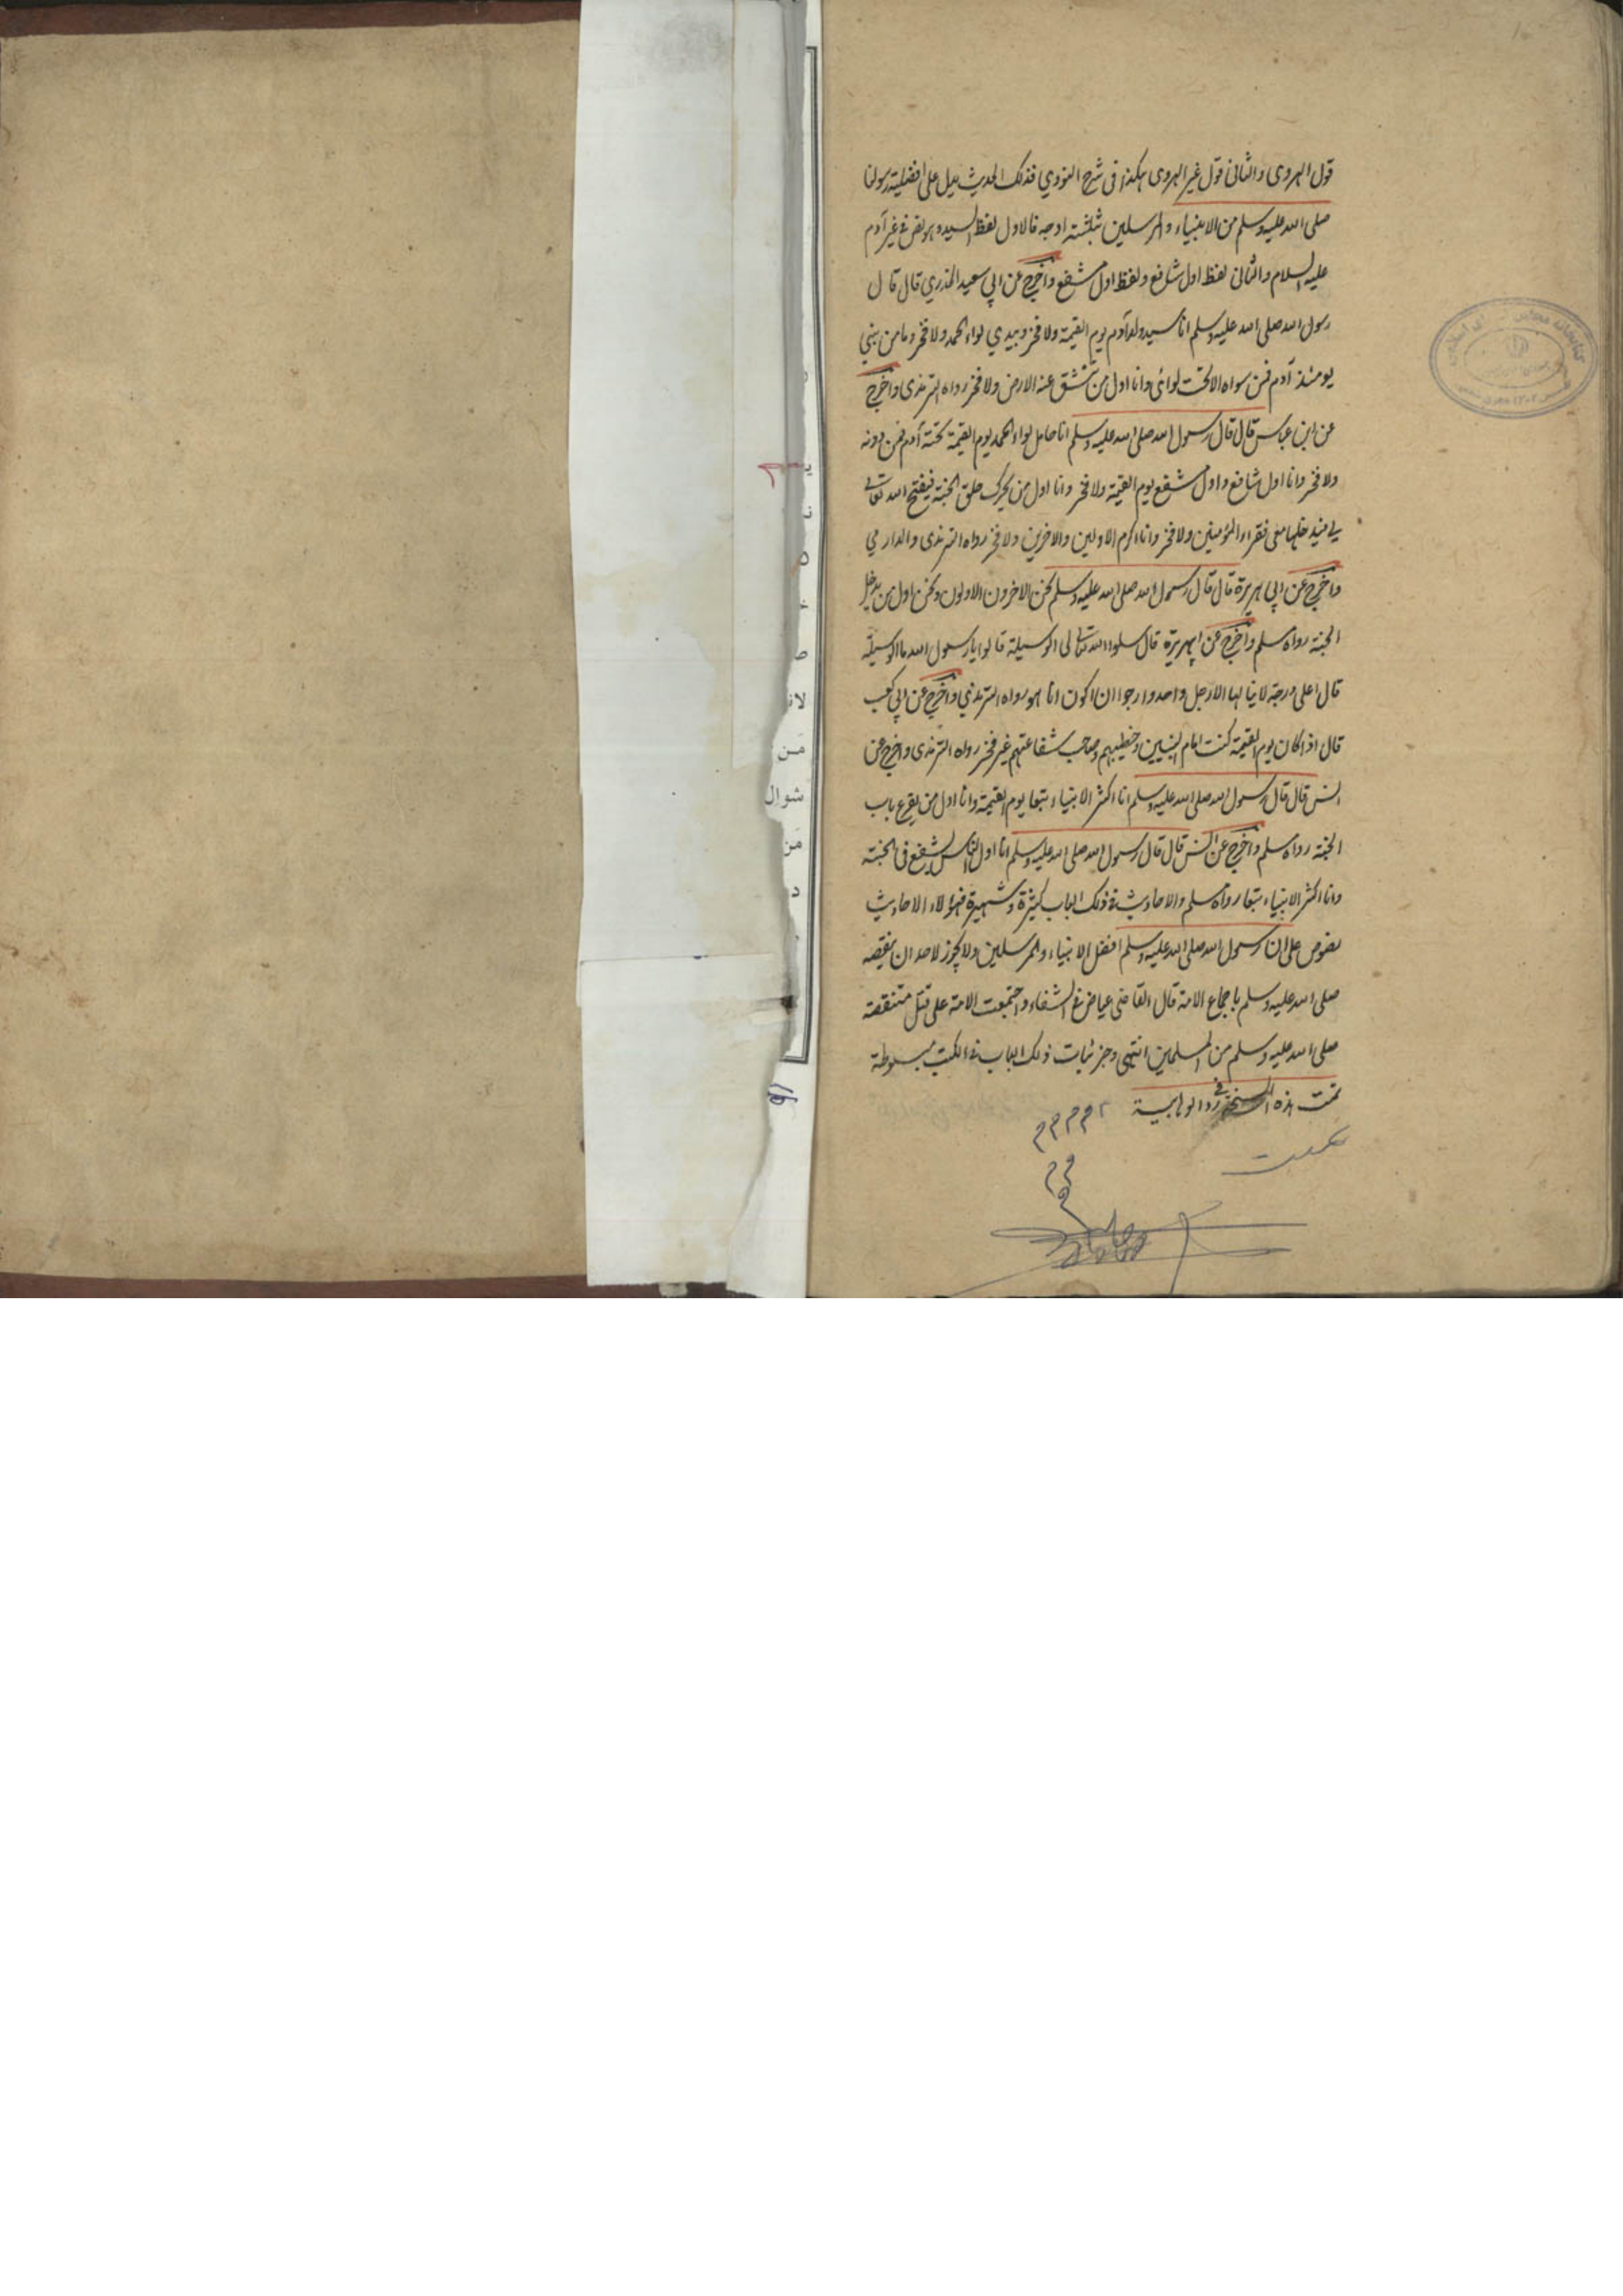 قول الهروى والثانى قول غير الهروى هكذا فى شرح النووي فذلك الحديث يدل على افضلية رسولنا
صلى الله عليه وسلم من الانبياء والمرسلين بثلثة اوجه فالاول لفظ السيد وهو نص فى غير آدم
عليه السلام والثانى لفظ اول شافع ولفظ اول مشفع واخرج عن ابي سعيد الخدري قال قال
رسول الله صلى الله عليه وسلم انا سيد ولد آدم يوم القيمة ولا فخر وبيدي لواء الحمد ولا فخر وما من نبي
يومئذ آدم فمن سواه الا تحت لوائى وانا اول من تنشق عنه الارض ولا فخر رواه الترمذى واخرج
عن ابن عباس قال قال رسول الله صلى الله عليه وسلم انا حامل لواء الحمد يوم القيمة تحته آدم فمن دونه
ولا فخر وانا اول شافع واول مشفع يوم القيمة ولا فخر وانا اول من يحرك حلق الجنة فيفتح الله تعالى
لي فيدخلها معى فقراء المؤمنين ولا فخر وانا اكرم الاولين والاخرين ولا فخر رواه الترمذى والدارمي
واخرج عن ابي هريرة قال قال رسول الله صلى الله عليه وسلم نحن الاخرون الاولون ونحن اول من يدخل
الجنة رواه مسلم واخرج عن ابيهريرة قال سلوا الله تعالى الوسيلة قالوا يا رسول الله ما الوسيلة
قال اعلى درجة لا ينالها الا رجل واحد وارجوا ان اكون انا هو رواه الترمذي واخرج عن ابي كعب
قال اذا كان يوم القيمة كنت امام النبيين وخطيبهم وصاحب شفاعتهم غير فخر رواه الترمذى واخرج عن
انس قال قال رسول الله صلى الله عليه وسلم انا اكثر الانبياء تبعا يوم القيمة وانا اول من يقرع باب
الجنة رواه مسلم واخرج عن انس قال قال رسول الله صلى الله عليه وسلم انا اول الناس يشفع فى الجنة
وانا اكثر الانبياء تبعا رواه مسلم والاحاديث فى ذلك الباب كثيرة وشهيرة فهؤلاء الاحاديث
نصوص على ان رسول الله صلى الله عليه وسلم افضل الانبياء والمرسلين ولا يجوز لاحد ان ينقصه
صلى الله عليه وسلم باجماع الامة قال القاضى عياض فى الشفاء واجتمعت الامة على قتل متنقصه
صلى الله عليه وسلم من المسلمين انتهى وجزئيات ذلك الباب فى الكتب مبسوطة
تمت هذه النسخة فى رد الوهابية
لا
من
شوال
من
د